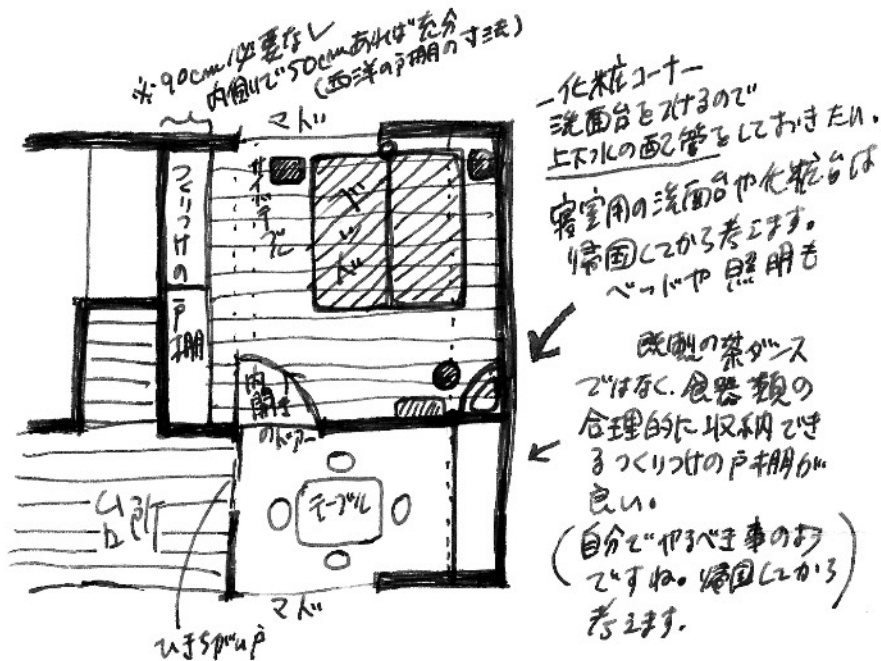 ※90cm必要なし
内側で50cmあれば充分
(西洋の戸棚の寸法)
マド
つくりつけの戸棚
サイドテーブル
ベッド
内開きのドアー
台所
テーブル
マド
ひきちがい戸
化粧コーナー
洗面台をつけるので
上下水の配管をしておきたい。
寝室用の洗面台や化粧台は
帰国してから考えます。
ベッドや照明も
既製の茶ダンス
ではなく、食器類の
合理的に収納でき
るつくりつけの戸棚が
良い。
(自分でやるべき事のよう
ですね。帰国してから
考えます。)